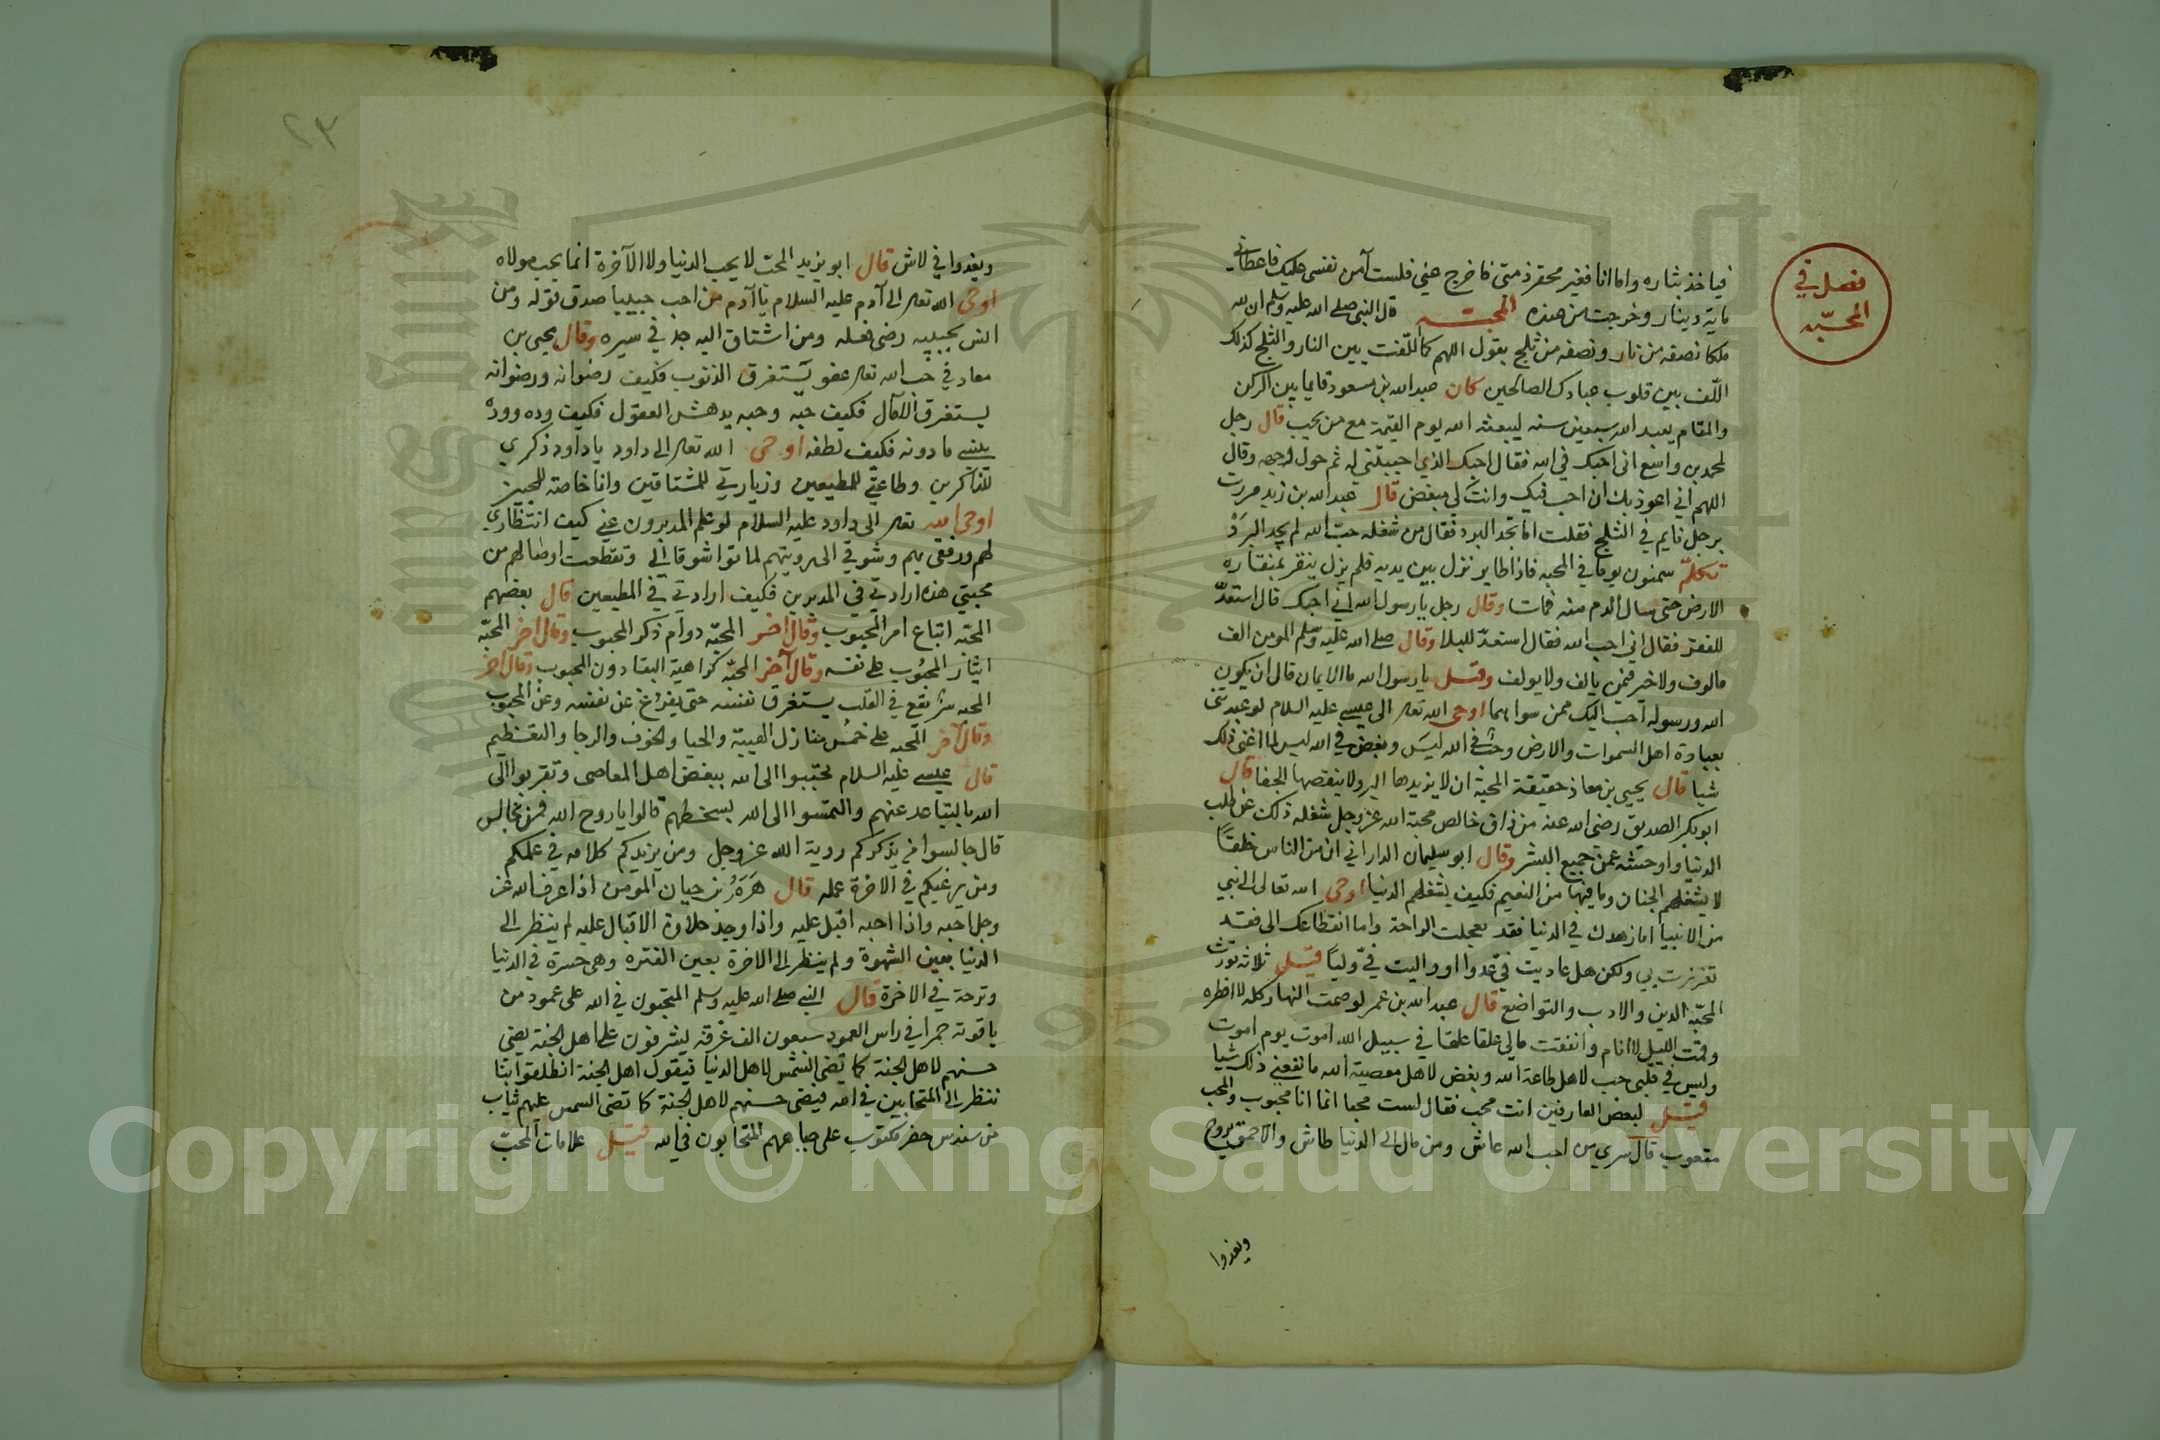 فصل في
المحبّة
فياخذ بثاره واما انا فقير محقر ذمتى فاخرج عني فلست آمن نفسي عليك فاعطاني
ماية دينار وخرجت من عنده المحبّة قال النبي صلى الله عليه وسلم ان لله
ملكا نصفه من نار ونصفه من ثلج يقول اللهم كما الّفت بين النار والثلج كذلك
الّف بين قلوب عبادك الصالحين كان عبد الله بن مسعود قايما بين الركن
والمقام يعبد الله سبعين سنه ليبعثه الله يوم القيمة مع من يحب قال رجل
لمحمد بن واسع اني احبك في الله فقال احبك الذي احببتني له ثم حول وجهه وقال
اللهم اني اعوذ بك ان احب فيك وانت لي مبغض قال عبد الله بن زيد مررت
برجل نايم في الثلج فقلت اما تجد البرد فقال من شغله حب الله لم يجد البرد
تكلم سمنون يوما في المحبه فاذا طاير نزل بين يديه فلم يزل ينقر بمنقاره
الارض حتى سال الدم منه فمات وقال رجل يا رسول الله اني احبك قال استعدّ
للفقر فقال اني احب الله فقال استعدّ للبلا وقال صلى الله عليه وسلم المومن الف
مالوف ولا خير فيمن يالف ولا يولف وقيل يا رسول الله ما الايمان قال ان يكون
الله ورسوله احب اليك ممن سواهما اوحى الله تعالى الى عيسى عليه السلام لو عبدتني
بعبادة اهل السموات والارض وحب في الله ليس وبغض في الله ليس لما اغنى ذلك
شيا قال يحيى بن معاذ حقيقة المحبة ان لا يزيدها البر ولا ينقصها الجفا قال
ابو بكر الصديق رضي الله عنه من ذاق خالص محبة الله عز وجل شغله ذلك عن طلب
الدنيا واوحشه عن جميع البشر وقال ابو سليمان الداراني ان من الناس خلقًا
لا يشغلهم الجنان وما فيها من النعيم فكيف يشغلهم الدنيا اوحى الله تعالى الى نبي
من الانبيا اما زهدك في الدنيا فقد تعجلت الراحة واما انقطاعك الي فقد
تعززت بي ولكن هل عاديت فيّ عدوا او واليت فيّ وليًا قيل ثلاثة تورث
المحبّة الدين والادب والتواضع قال عبد الله بن عمر لو صمت النهار كله لا افطره
وقمت الليل لا انام وانفقت مالي علقا علقا في سبيل الله اموت يوم اموت
وليس في قلبي حب لاهل طاعة الله وبغض لاهل معصية الله ما نفعني ذلك شيا
قيل لبعض العارفين انت محب فقال لست محبا انما انا محبوب والمحب
متعوب قال سري من احب الله عاش ومن مال الى الدنيا طاش والاحمق يروح
ويغدوا
٢٣
ويغدوا في لاش قال ابو يزيد المحبّ لا يحب الدنيا ولا الآخرة انما يحب مولاه
اوحى الله تعالى الى آدم عليه السلام يا آدم من احب حبيبا صدق قوله ومن
انس بحبيبه رضي فعله ومن اشتاق اليه جد في سيره وقال يحيى بن
معاذ في حب الله تعالى عفو يستغرق الذنوب فكيف رضوانه ورضوانه
يستغرق الآمال فكيف حبّه وحبه يدهش العقول فكيف وده ووده
ينسي ما دونه فكيف لطفه اوحى الله تعالى الى داود يا داود ذكري
للذاكرين وطاعتي للمطيعين وزيارتي للمشتاقين وانا خاصة للمحبين
اوحى الله تعالى الى داود عليه السلام لو علم المدبرون عني كيف انتظاري
لهم ورفقي بهم وشوقي الى رويتهم لماتوا شوقا الي وتقطعت اوصالهم من
محبتي هذه ارادتي في المدبرين فكيف ارادتي في المطيعين قال بعضهم
المحبّة اتباع امر المحبوب وقال آخر المحبّه دوام ذكر المحبوب وقال آخر المحبّة
ايثار المحبُوب على نفسه وقال آخر المحبّة كراهية البقا دون المحبوب وقال آخر
المحبه شر يقع في القلب يستغرق نفسه حتى يفرغ عن نفسه وعن المحبوب
وقال آخر المحبه على خمس منازل الهيبة والحيا والخوف والرجا والتعظيم
قال عيسى عليه السلام تحببوا الى الله ببغض اهل المعاصي وتقربوا الى
الله بالتباعد عنهم والتمسوا الى الله بسخطهم قالوا يا روح الله فمن نجالس
قال جالسوا من يذكركم روية الله عز وجل ومن يزيدكم كلامه في علمكم
ومن يرغبكم في الاخرة عمله قال هَرَمُ بن حيان المومن اذا عرف الله عز
وجل احبه واذا احبه اقبل عليه واذا وجد حلاوة الاقبال عليه لم ينظر الى
الدنيا بعين الشهوة ولم ينظر الى الاخرة بعين الفتره وهي حسرة في الدنيا
وترحة في الاخرة قال النبي صلى الله عليه وسلم المتحبون في الله على عمود من
ياقوته حمرا في راس العمود سبعون الف غرفة يشرفون على اهل الجنة يضي
حسنهم لاهل الجنة كما تضي الشمس لاهل الدنيا فيقول اهل الجنة انطلقوا بنا
ننظر الى المتحابين في الله فيضي حسنهم لاهل الجنة كما تضي الشمس عليهم ثياب
من سندس خضر مكتوب على جباههم المتحابون في الله قيل علامات المحبّ
Copyright © King Saud University
1957